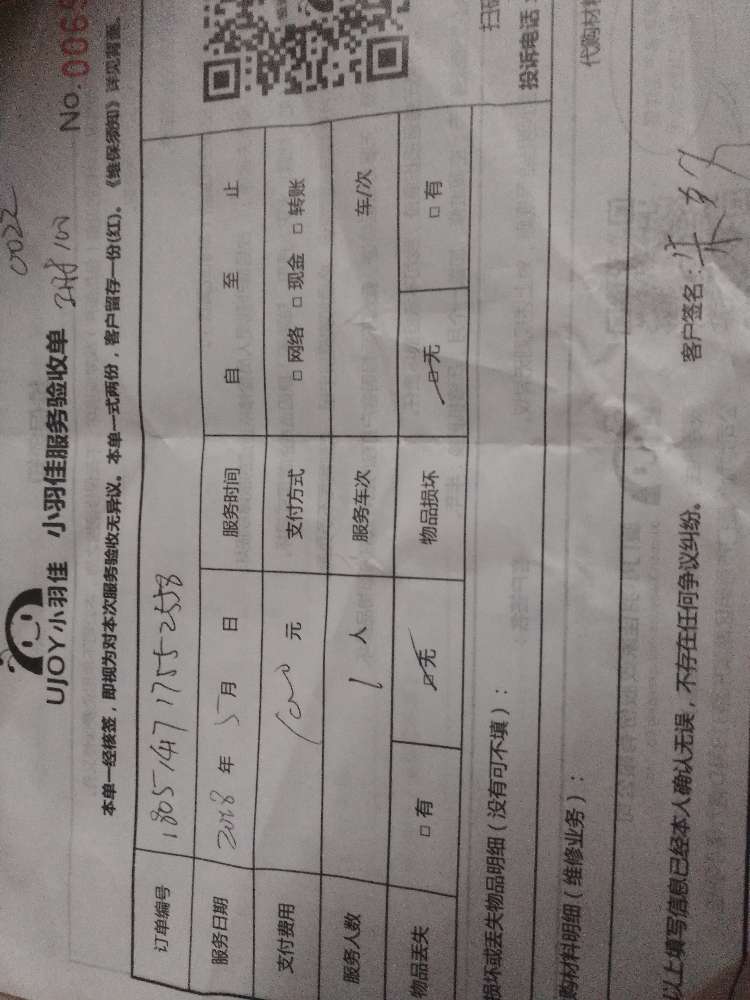 0022
UJOY小羽佳 小羽佳服务验收单
No.006
本单一经核签，即视为对本次服务验收无异议。本单一式两份，客户留存一份(红)。《维保须知》详见背面。
订单编号 1805141717552558
服务日期 2018 年 5 月 日 服务时间 自 至 止
支付费用 元 支付方式 □ 网络 □ 现金 □ 转账
服务人数 1 人 服务车次 车/次
物品丢失 □ 有 □ 无 物品损坏 □ 无 □ 有
损坏或丢失物品明细（没有可不填）：
投诉电话
购材料明细（维修业务）：
代购材料
以上填写信息已经本人确认无误，不存在任何争议纠纷。 客户签名：